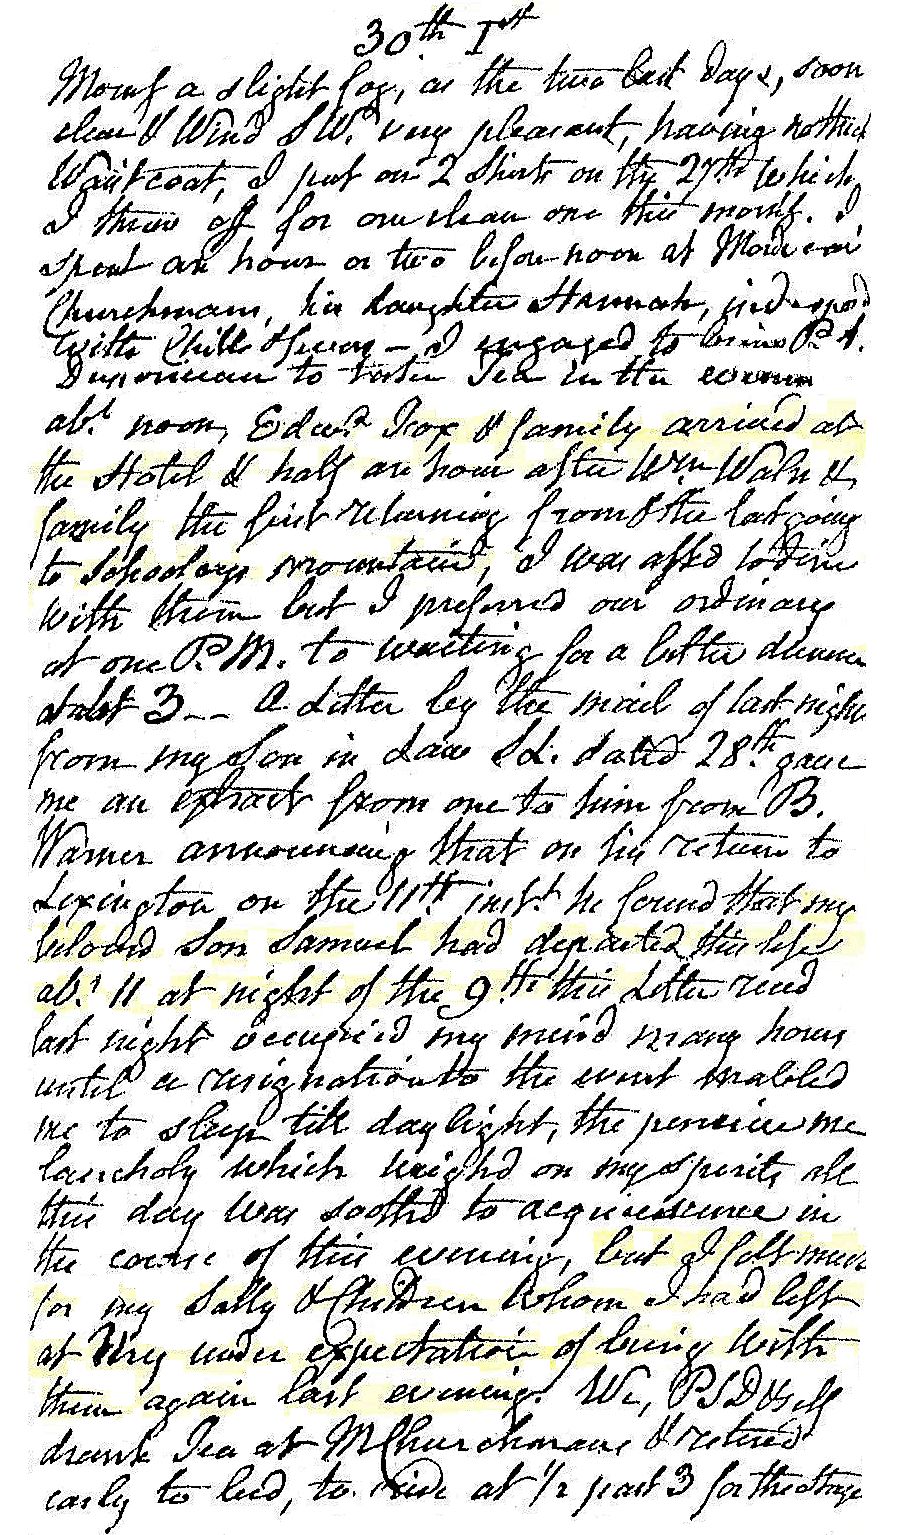 30th 1st
Morng a slight fog, as the two last days, soon
clear & Wind SW. very pleasant, having no thick
Waistcoat, I put on 2 Shirts on the 27th which
I threw off for one clean one this morng. I
spent an hour or two before noon at Mordecai
Churchmans, his daughter Hannah, indisposed
with Chills & fever — I engaged to bring P. S.
to take Tea in the evening
abt. noon, Edwd. Fox & family arrived at
the Hotel & half an hour after Wm Waln &
family the first returning from & the last going
to Schooleys mountain, I was asked to dine
with them but I preferred our ordinary
at one P.M. to waiting for a better dinner
at abt 3 -- A Letter by the mail of last night
from my Son in Law SL. dated 28th. gave
me an extract from one to him from B.
Warner announcing that on his return to
Lexington on the 11th. inst. he found that my
beloved Son Samuel had departed this life
abt. 11 at night of the 9th. this Letter recd
last night occupied my mind many hours
until a resignation to the event enabled
me to sleep till daylight, the pensive me
lancholy which weighd on my spirits all
this day was soothd to acquiescence in
the course of this evening, but I felt much
for my Sally & Children whom I had left
at under expectation of being with
them again last evening. We, PSD & self
drank Tea at MChurchmans & retired
early to bed, to rise at 1/2 past 3 for the Stage